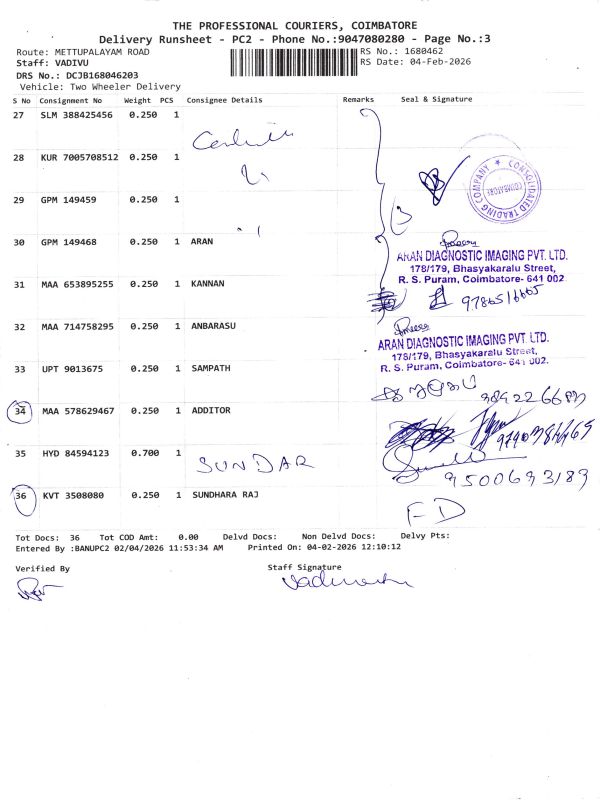 THE PROFESSIONAL COURIERS, COIMBATORE
Delivery Runsheet - PC2 - Phone No.:9047080280 - Page No.:3
Route: METTUPALAYAM ROAD
RS No.: 1680462
Staff: VADIVU
RS Date: 04-Feb-2026
DRS No.: DCJB168046203
Vehicle: Two Wheeler Delivery
S No Consignment No Weight PCS Consignee Details Remarks Seal & Signature
27 SLM 388425456 0.250 1
28 KUR 7005708512 0.250 1
CONSOLIDATED TRADING COMPANY ★
COIMBATORE
29 GPM 149459 0.250 1
30 GPM 149468 0.250 1 ARAN
ARAN DIAGNOSTIC IMAGING PVT. LTD.
178/179, Bhasyakaralu Street,
R. S. Puram, Coimbatore- 641 002
31 MAA 653895255 0.250 1 KANNAN
32 MAA 714758295 0.250 1 ANBARASU
ARAN DIAGNOSTIC IMAGING PVT. LTD.
178/179, Bhasyakaralu Street,
R. S. Puram, Coimbatore- 641 002.
33 UPT 9013675 0.250 1 SAMPATH
34 MAA 578629467 0.250 1 ADDITOR
35 HYD 84594123 0.700 1 SUNDAR
9500693189
36 KVT 3508080 0.250 1 SUNDHARA RAJ
FD
Tot Docs: 36 Tot COD Amt: 0.00 Delvd Docs: Non Delvd Docs: Delvy Pts:
Entered By :BANUPC2 02/04/2026 11:53:34 AM Printed On: 04-02-2026 12:10:12
Verified By Staff Signature